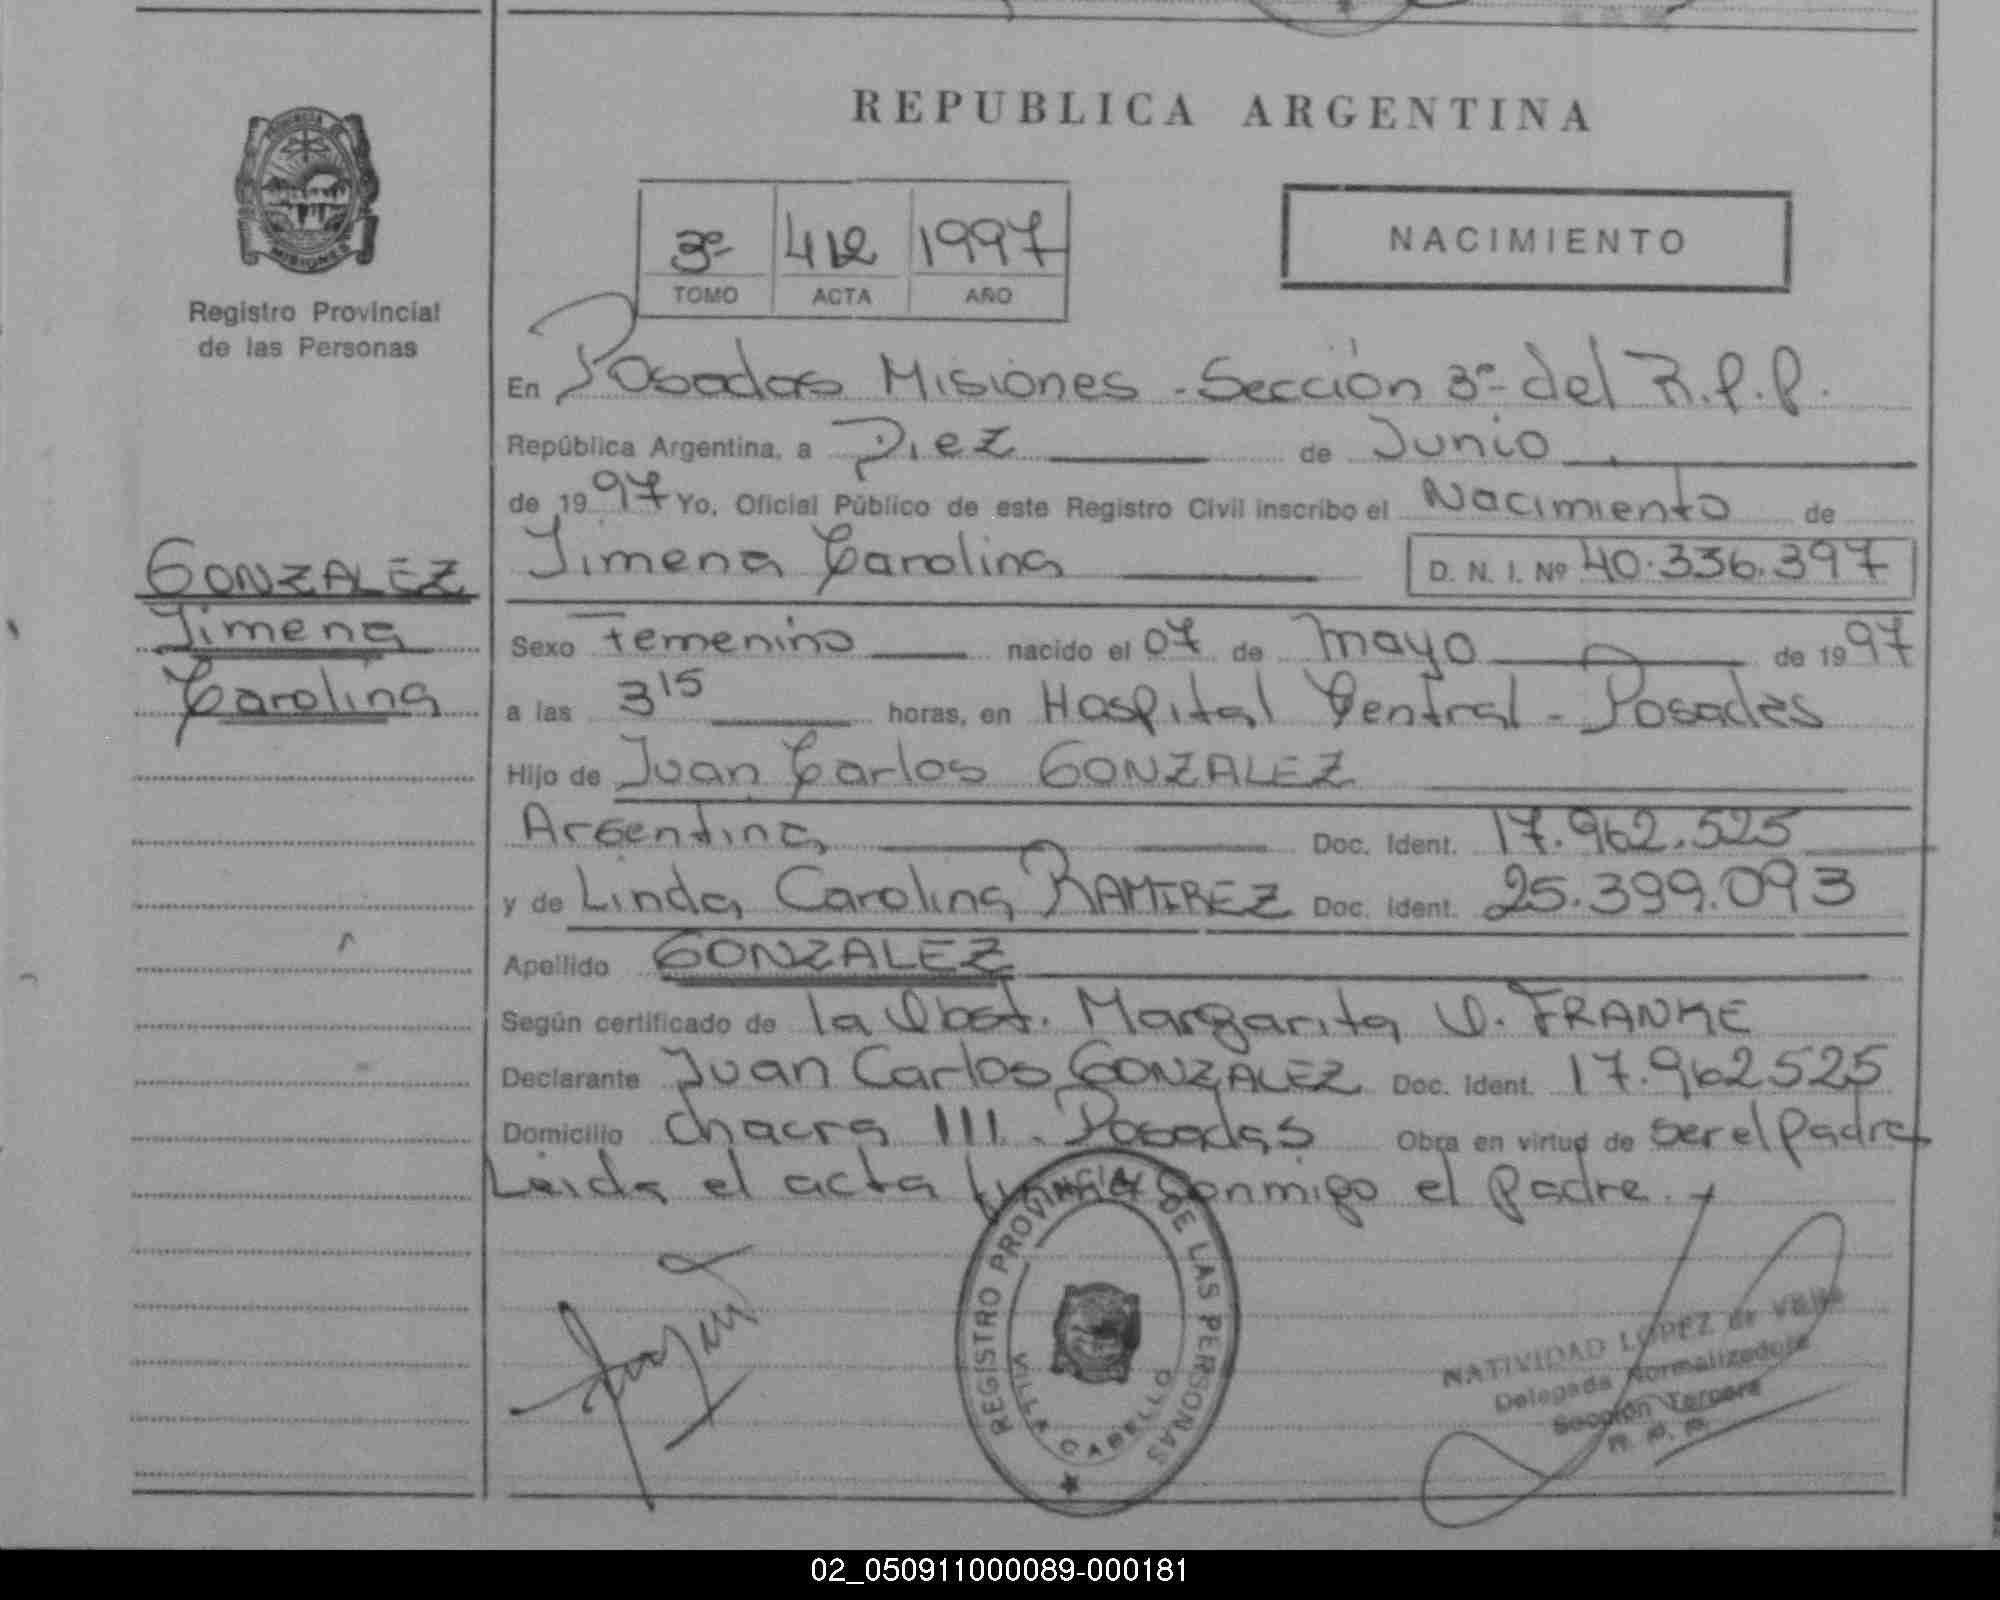 REPUBLICA ARGENTINA
PROVINCIA DE
MISIONES
Registro Provincial
de las Personas
3º 412 1997
TOMO ACTA AÑO
NACIMIENTO
En Posadas Misiones - Sección 3º del R.P.P.
República Argentina, a Diez de Junio
de 1997 Yo, Oficial Público de este Registro Civil inscribo el Nacimiento de
GONZALEZ
Jimena
Carolina
Jimena Carolina D. N. I. Nº 40.336.397
Sexo Femenino nacido el 07 de mayo de 1997
a las 3 15 horas, en Hospital Central - Posadas
Hijo de Juan Carlos GONZALEZ
Argentina Doc. Ident. 17.962.525
y de Linda Carolina RAMIREZ Doc. Ident. 25.399.093
Apellido GONZALEZ
Según certificado de la Obst. Margarita O. FRANKE
Declarante Juan Carlos GONZALEZ Doc. Ident. 17.962525
Domicilio Chacra 111. Posadas Obra en virtud de ser el padre
Leida el acta firma conmigo el padre.
REGISTRO PROVINCIAL DE LAS PERSONAS
VILLA CABELLO
NATIVIDAD LOPEZ de
Delegada Normalizadora
Sección Tercera
R. P. P.
02_050911000089-000181